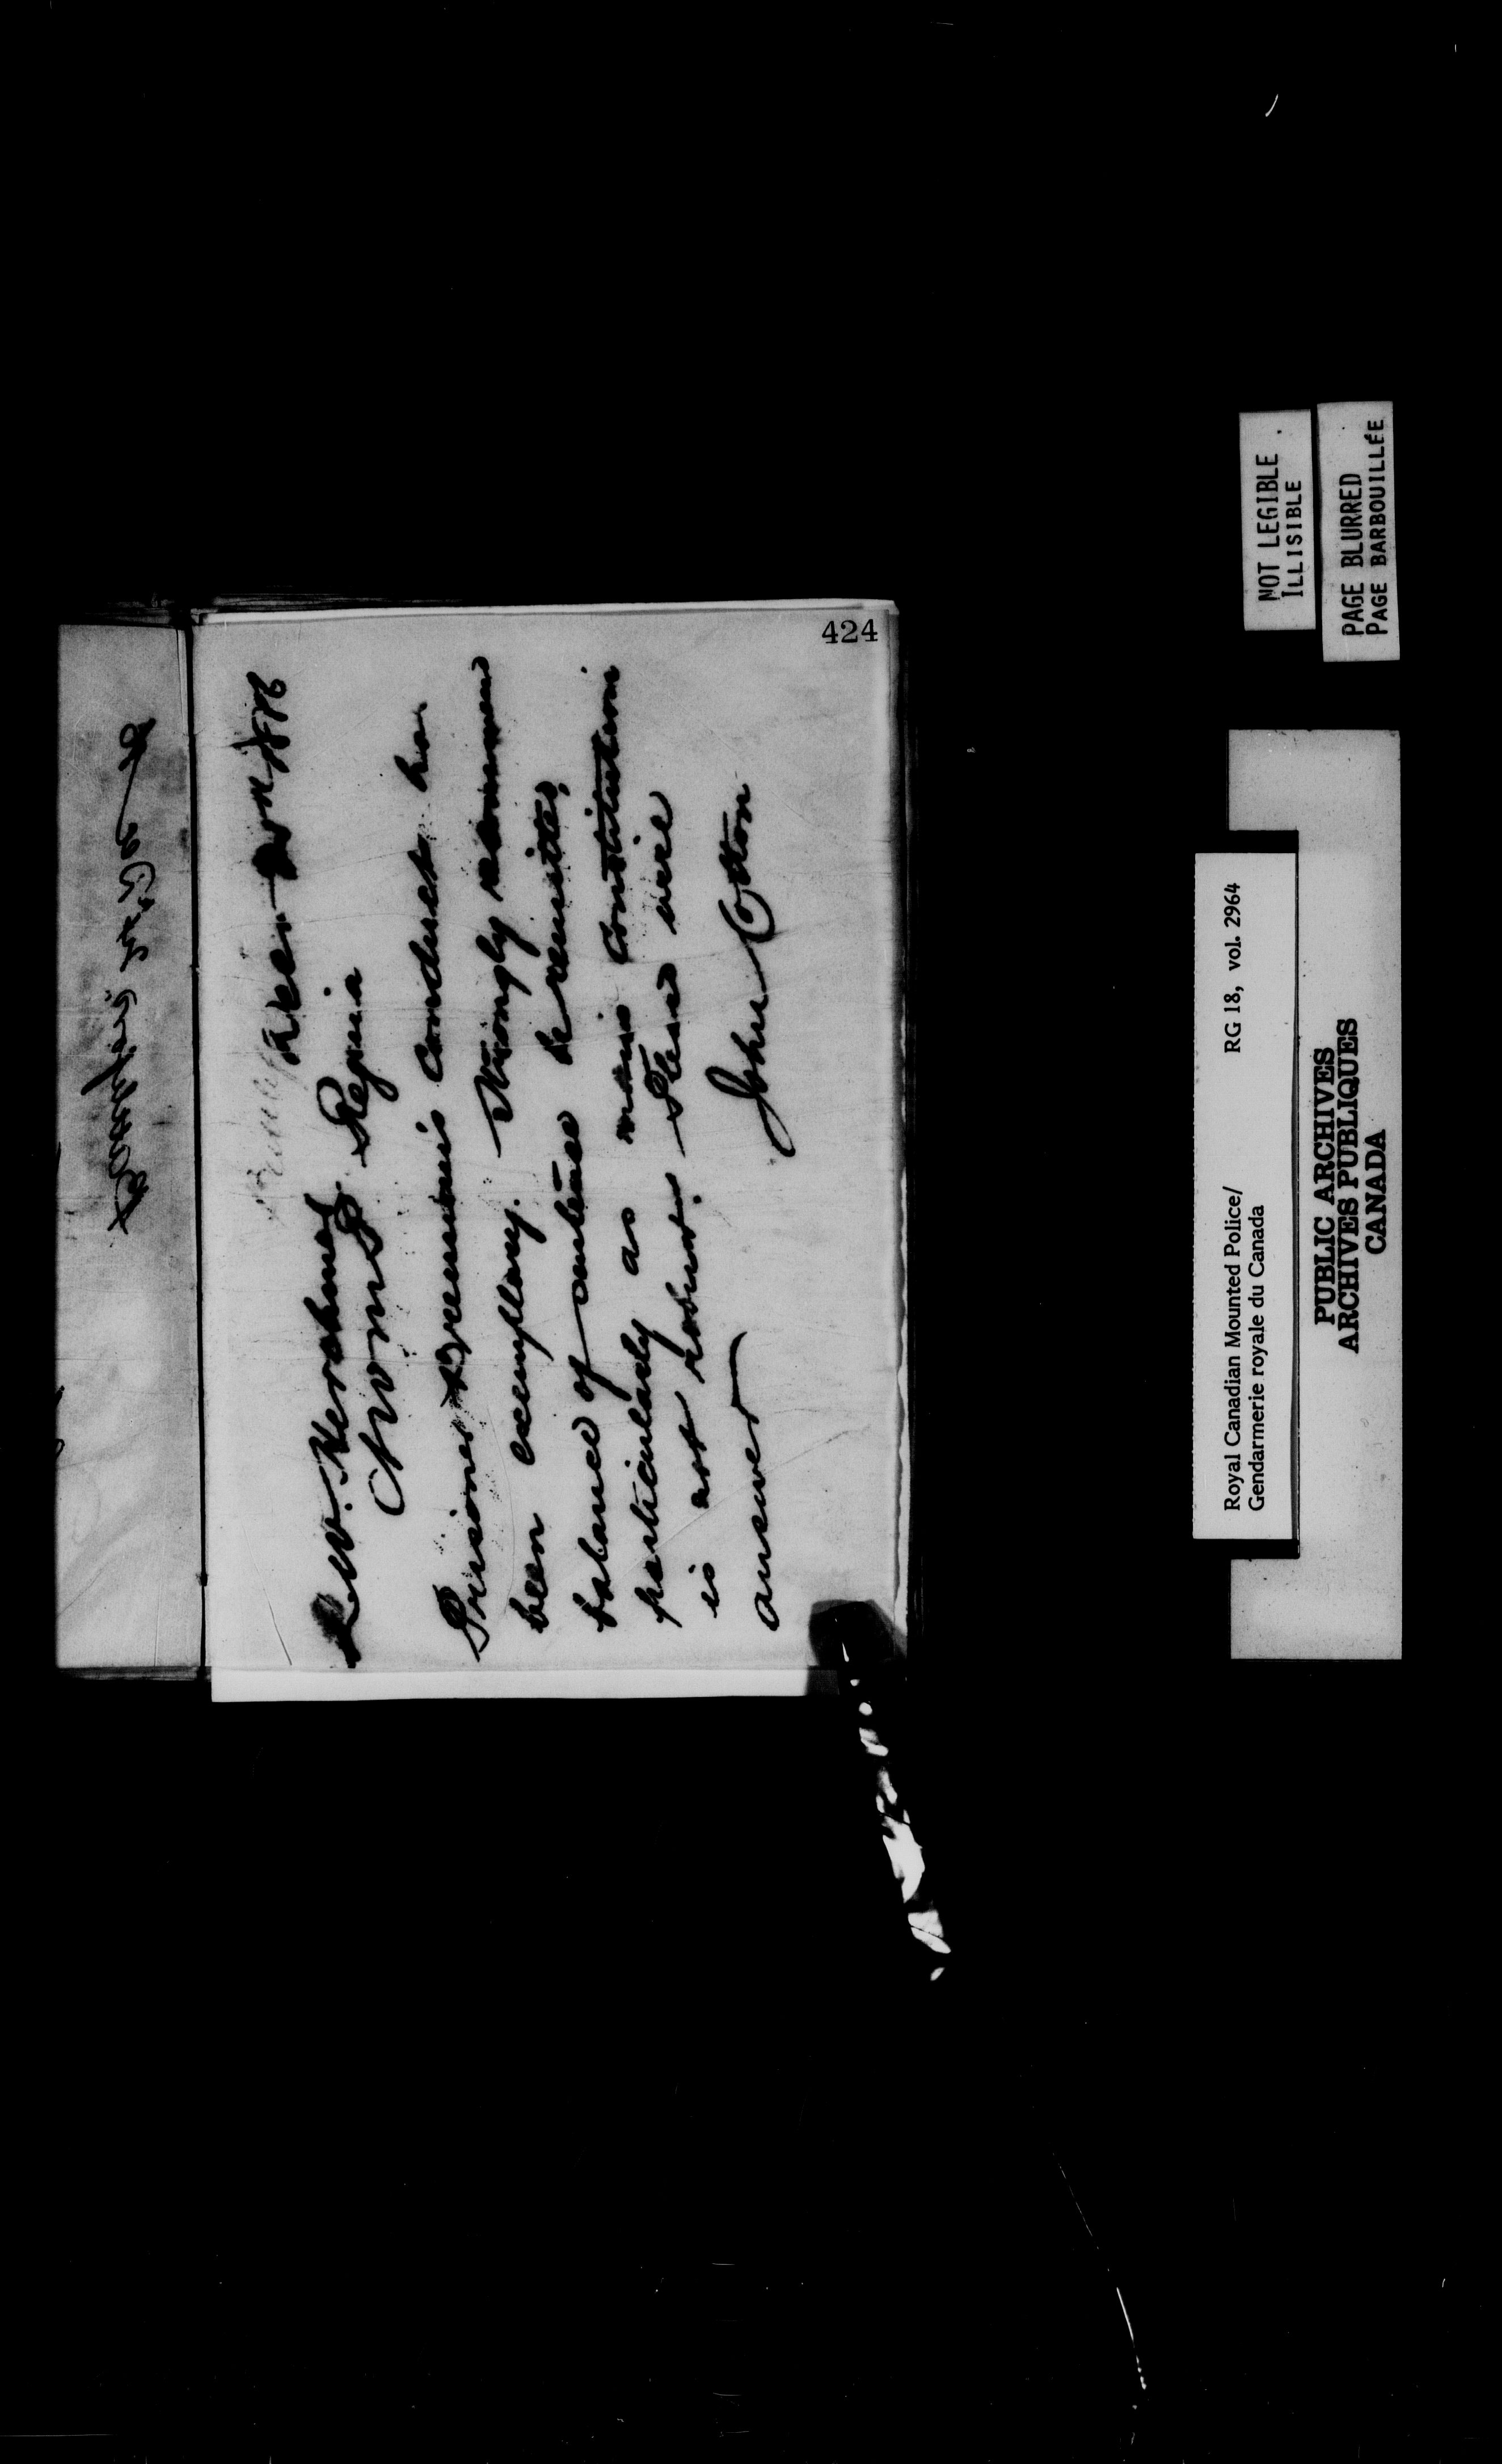 424
L. W. Herchmer
N W M P Regina
Prisoner conduct has
been exemplary. Strongly recommend
balance of sentence be remitted,
particularly as mans constitution
is not robust. Please wire
answer
John Cotton
NOT LEGIBLE
ILLISIBLE
PAGE BLURRED
PAGE BARBOUILLÉE
Royal Canadian Mounted Police/ RG 18, vol. 2964
Gendarmerie royale du Canada
PUBLIC ARCHIVES
ARCHIVES PUBLIQUES
CANADA